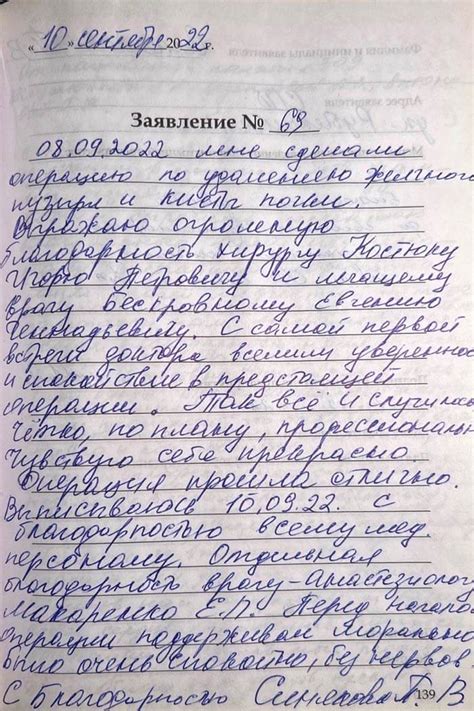 « 10 » сентября 2022 г.
Заявление № 69
08.09.2022 мне сделали
операцию по удалению желчного
пузыря и кисты почки.
Выражаю огромную
благодарность хирургу Костюку
Игорю Петровичу и лечащему
врачу Бескровному Евгению
Геннадьевичу. С самой первой
встречи доктора вселили увереннос
и спокойствие в предстоящей
операции. Так всё и случилос
Чётко, по плану, профессиональн
Чувствую себе прекрасно.
Операция прошла отлично.
Выписываюсь 10.09.22. С
благодарностью всему мед.
персоналу. Отдельная
благодарность врачу-анастезиолог
Макаренко Е.П. Перед начало
операции поддерживал морально
было очень спокойно, без нервов
С благодарностью В
139